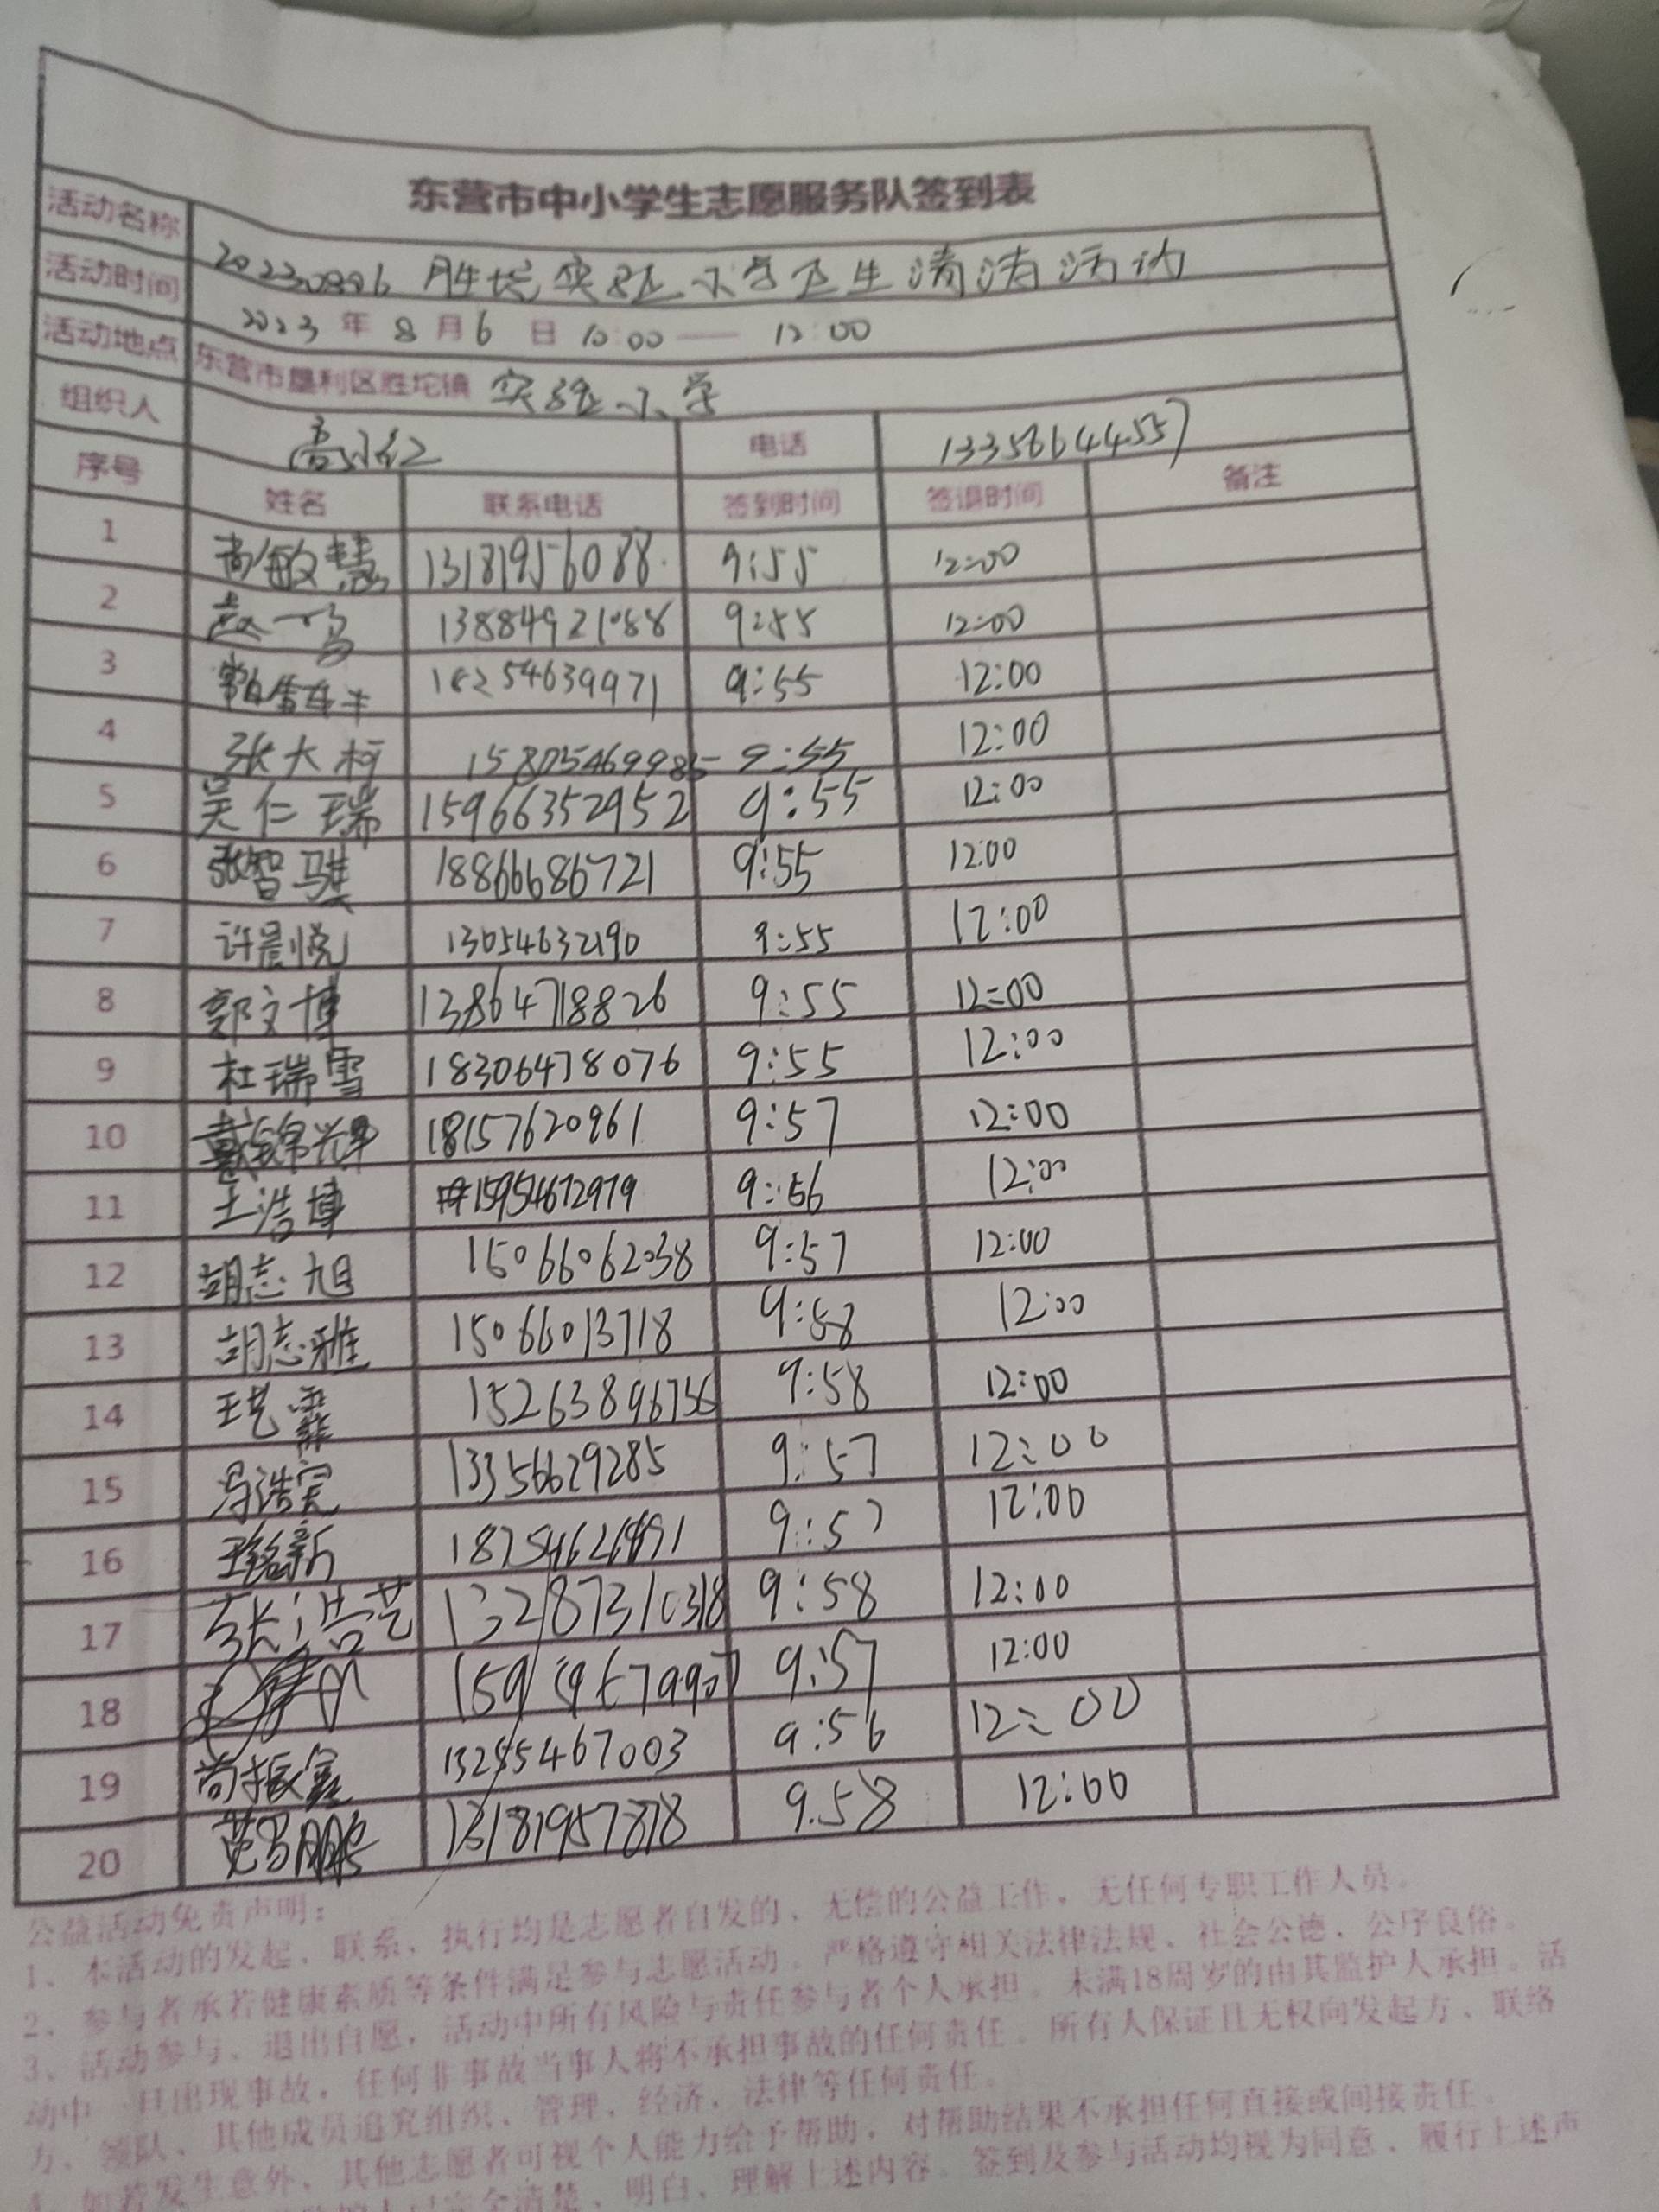 东营市中小学生志愿服务队签到表
活动名称 20230806 胜坨实验小学卫生清洁活动
活动时间 2023 年 8 月 6 日 10:00 — 12:00
活动地点 东营市垦利区胜坨镇 实验小学
组织人 电话 13356644557
序号 姓名 联系电话 签到时间 签退时间 备注
1 尚敏慧 13181956088 9:55 12:00
2 13884921088 9:55 12:00
3 18254639971 9:55 12:00
4 张大柯 15805469985 9:55 12:00
5 吴仁瑞 15966352952 9:55 12:00
6 张智骐 18866686721 9:55 12:00
7 许晨悦 13054632190 9:55 12:00
8 郭文博 13864718826 9:55 12:00
9 杜瑞雪 18306478076 9:55 12:00
10 戴锦辉 18157620961 9:57 12:00
11 王浩博 15954672979 9:56 12:00
12 胡志旭 15066062038 9:57 12:00
13 胡志雅 15066013718 9:58 12:00
14 15263896756 9:58 12:00
15 13356629285 9:57 12:00
16 王铭新 9:57 12:00
17 张浩艺 13287310318 9:58 12:00
18 9:57 12:00
19 尚振鑫 13255467003 9:56 12:00
20 13181957878 9.58 12:00
公益活动免责声明：
1、本活动的发起、联系、执行均是志愿者自发的、无偿的公益工作，无任何专职工作人员。
2、参与者承若健康素质等条件满足参与志愿活动。严格遵守相关法律法规、社会公德、公序良俗。
3、活动参与、退出自愿，活动中所有风险与责任参与者个人承担。未满18周岁的由其监护人承担。活
动中一旦出现事故，任何非事故当事人将不承担事故的任何责任。所有人保证且无权向发起方、联络
方、领队、其他成员追究组织、管理、经济、法律等任何责任。
4、如若发生意外，其他志愿者可视个人能力给予帮助，对帮助结果不承担任何直接或间接责任。
已完全清楚、明白、理解上述内容。签到及参与活动均视为同意、履行上述声